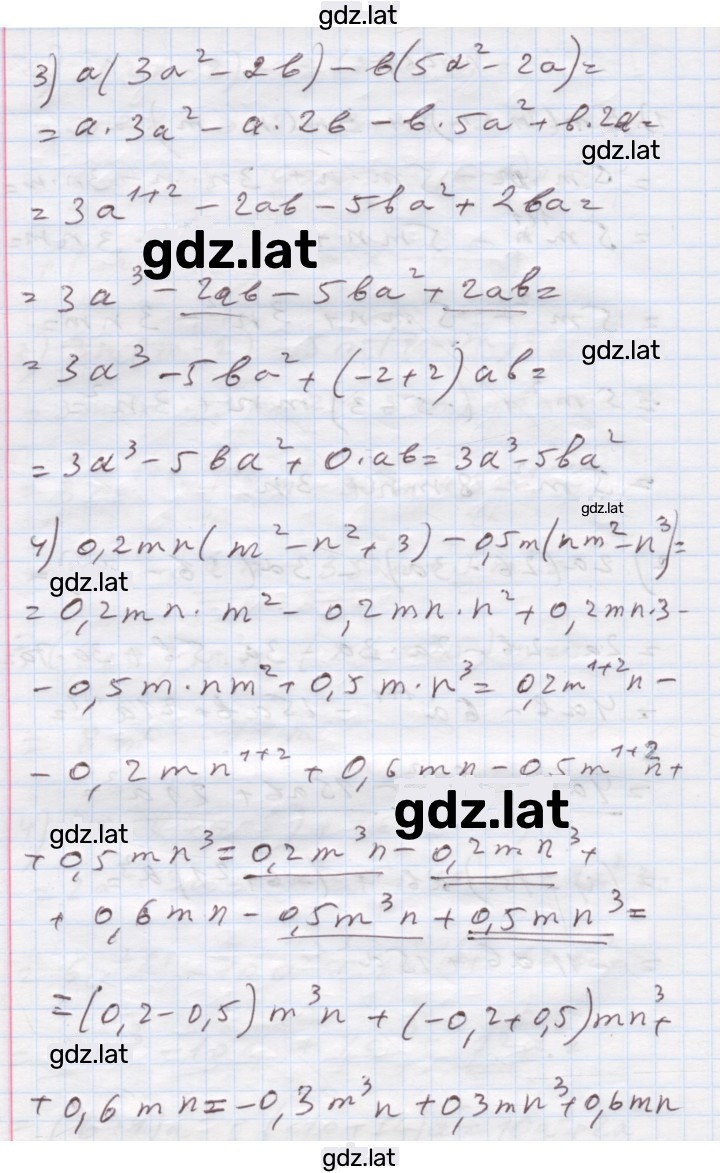 gdz.lat
3) a(3a² - 2b) - b(5a² - 2a) =
= a · 3a² - a · 2b - b · 5a² + b · 2a =
gdz.lat
= 3a¹⁺² - 2ab - 5ba² + 2ba =
gdz.lat
= 3a³ - 2ab - 5ba² + 2ab =
gdz.lat
= 3a³ - 5ba² + (-2+2)ab =
= 3a³ - 5ba² + 0 · ab = 3a³ - 5ba²
gdz.lat
4) 0,2mn(m² - n² + 3) - 0,5m(nm² - n³) =
gdz.lat
= 0,2mn · m² - 0,2mn · n² + 0,2mn · 3 -
- 0,5m · nm² + 0,5m · n³ = 0,2m¹⁺²n -
- 0,2mn¹⁺² + 0,6mn - 0,5m¹⁺²n +
gdz.lat
gdz.lat
+ 0,5mn³ = 0,2m³n - 0,2mn³ +
+ 0,6mn - 0,5m³n + 0,5mn³ =
= (0,2 - 0,5)m³n + (-0,2 + 0,5)mn³ +
gdz.lat
+ 0,6mn = -0,3m³n + 0,3mn³ + 0,6mn
gdz.lat